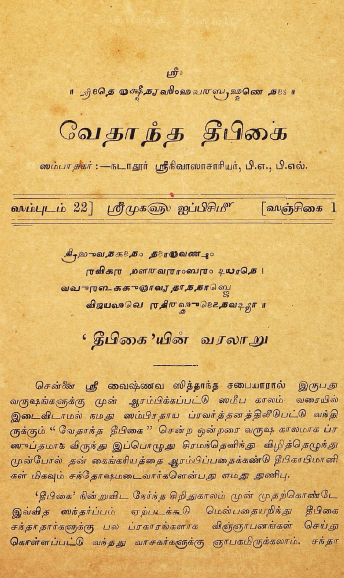 ஸ்ரீ:
வேதாந்த தீபிகை
ஸம்பாதகர் :—நடாதூர் ஸ்ரீநிவாஸாசாரியர், பி.ஏ., பி.எல்.
ஸம்புடம் 22] ஸ்ரீமுகஹு ஐப்பிசிமீ [ஸஞ்சிகை 1
‘ தீபிகை ’யின் வரலாறு
சென்னை ஸ்ரீ வைஷ்ணவ ஸித்தாந்த சபையாரால் இருபது
வருஷங்களுக்கு முன் ஆரம்பிக்கப்பட்டு ஸமீப காலம் வரையில்
இடைவிடாமல் நமது ஸம்பிரதாய ப்ரவர்த்தனத்திலீடுபட்டு வந்தி
ருக்கும் “ வேதாந்த தீபிகை ” சென்ற ஒன்றரை வருஷ காலமாக ப்ர
ஸுப்தமாக விருந்து இப்பொழுது கிரமந்தெளிந்து விழித்தெழுந்து
முன்போல் தன் கைங்கரியத்தை ஆரம்பிப்பதைக்கண்டு தீபிகாபிமானி
கள் மிகவும் சந்தோஷமடைவார்களென்பது எமது துணிபு.
‘தீபிகை’ நின்றுவிட நேர்ந்த சிறிதுகாலம் முன் முதற்கொண்டே
இவ்வித ஸந்தர்ப்பம் ஏற்படக்கூடு மென்பதையறிந்து தீபிகை
சந்தாதார்களுக்கு பல ப்ரகாரங்களாக விஞ்ஞாபனங்கள் செய்து
கொள்ளப்பட்டு வந்தது வாசகர்களுக்கு ஞாபகமிருக்கலாம். சந்தா